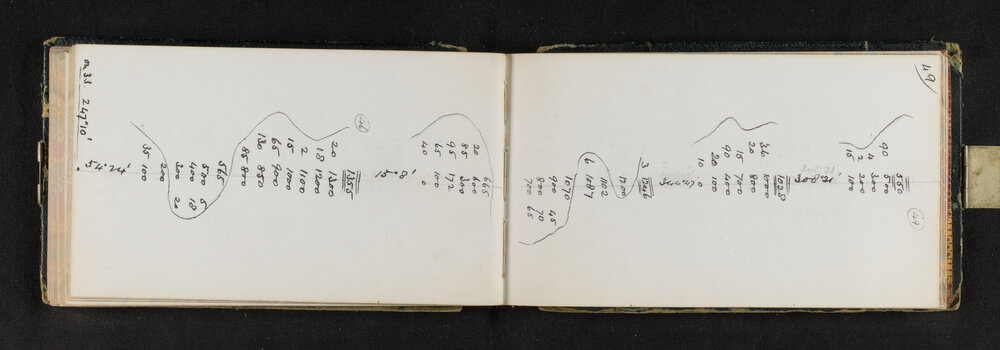 49
49
550
90 500
4 300
2 200
15 100
308°21'
1028
36 1000
20 800
15 700
90 400
20 100
10 0
34°47
3 1246
1200
1102
6 1087
1070
900 45
800 70
700 65
665
20 600
85 300
95 172
65 100
40 0
15°8'
46
1355
20 1300
18 1200
2 1100
15 1000
65 900
130 850
85 800
565
500 5
400 18
300 20
200
35 100
54°24'
33. 247°10'